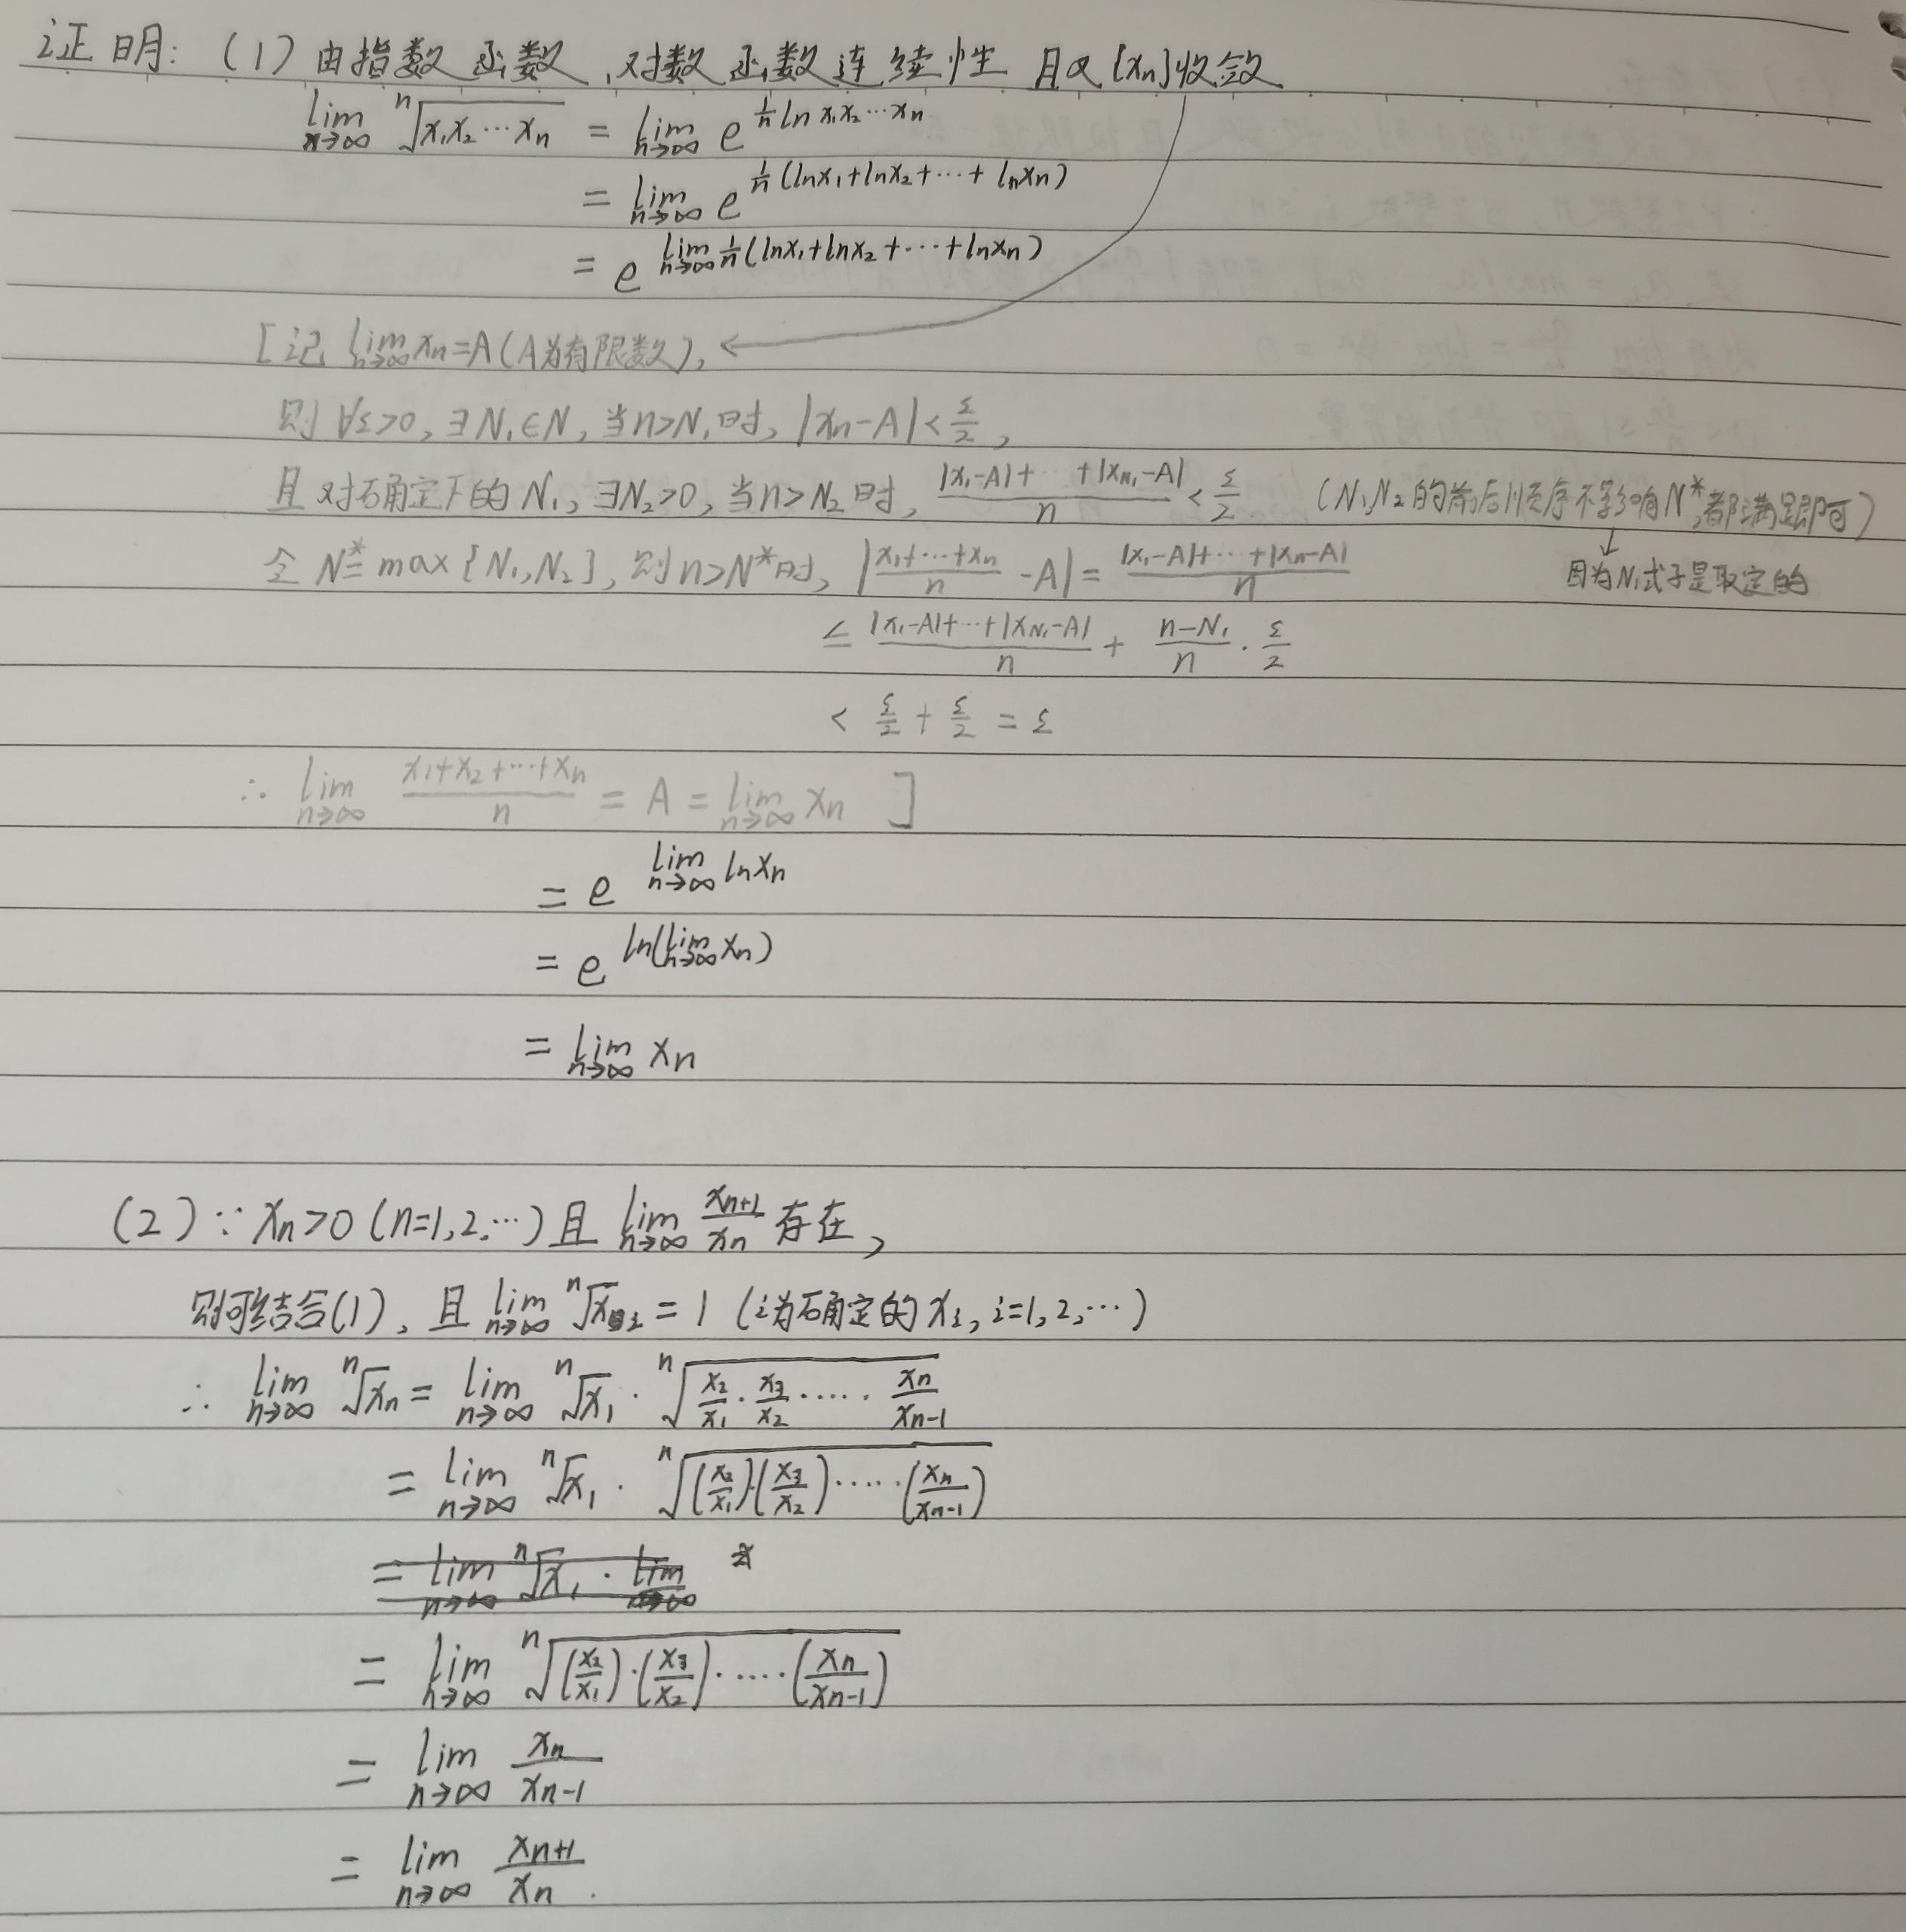 证明：（1）由指数函数、对数函数连续性 且又{xn}收敛
lim n→∞ ⁿ√(x₁x₂⋯xn) = lim n→∞ e^(1/n ln x₁x₂⋯xn)
= lim n→∞ e^(1/n (lnx₁+lnx₂+⋯+lnxn))
= e^(lim n→∞ 1/n (lnx₁+lnx₂+⋯+lnxn))
[记 lim n→∞ xn=A（A为有限数），←
则 ∀ε>0, ∃N₁∈N, 当n>N₁时, |xn-A|<ε/2,
且对确定下的N₁, ∃N₂>0, 当n>N₂时, (|x₁-A|+⋯+|x_N₁-A|)/n < ε/2. （N₁,N₂的前后顺序不影响N*,都满足即可）
令 N*=max{N₁,N₂}, 则n>N*时, |(x₁+⋯+xn)/n -A| = (|x₁-A|+⋯+|xn-A|)/n ↓
因为N₁式子是取定的
≤ (|x₁-A|+⋯+|x_N₁-A|)/n + (n-N₁)/n · ε/2
< ε/2 + ε/2 = ε
∴ lim n→∞ (x₁+x₂+⋯+xn)/n = A = lim n→∞ xn ]
= e^(lim n→∞ lnxn)
= e^(ln(lim n→∞ xn))
= lim n→∞ xn
（2）∵ xn>0 (n=1,2,⋯) 且 lim n→∞ xn+1/xn 存在,
则可结合(1), 且 lim n→∞ ⁿ√xi = 1 (i为确定的xi, i=1,2,⋯)
∴ lim n→∞ ⁿ√xn = lim n→∞ ⁿ√x₁ · ⁿ√(x₂/x₁ · x₃/x₂ · ⋯⋯ · xn/xn-1)
= lim n→∞ ⁿ√x₁ · ⁿ√((x₂/x₁)·(x₃/x₂)·⋯⋯·(xn/xn-1))
= lim n→∞ ⁿ√x₁ · lim n→∞
= lim n→∞ ⁿ√((x₂/x₁)·(x₃/x₂)·⋯⋯·(xn/xn-1))
= lim n→∞ xn/xn-1
= lim n→∞ xn+1/xn .